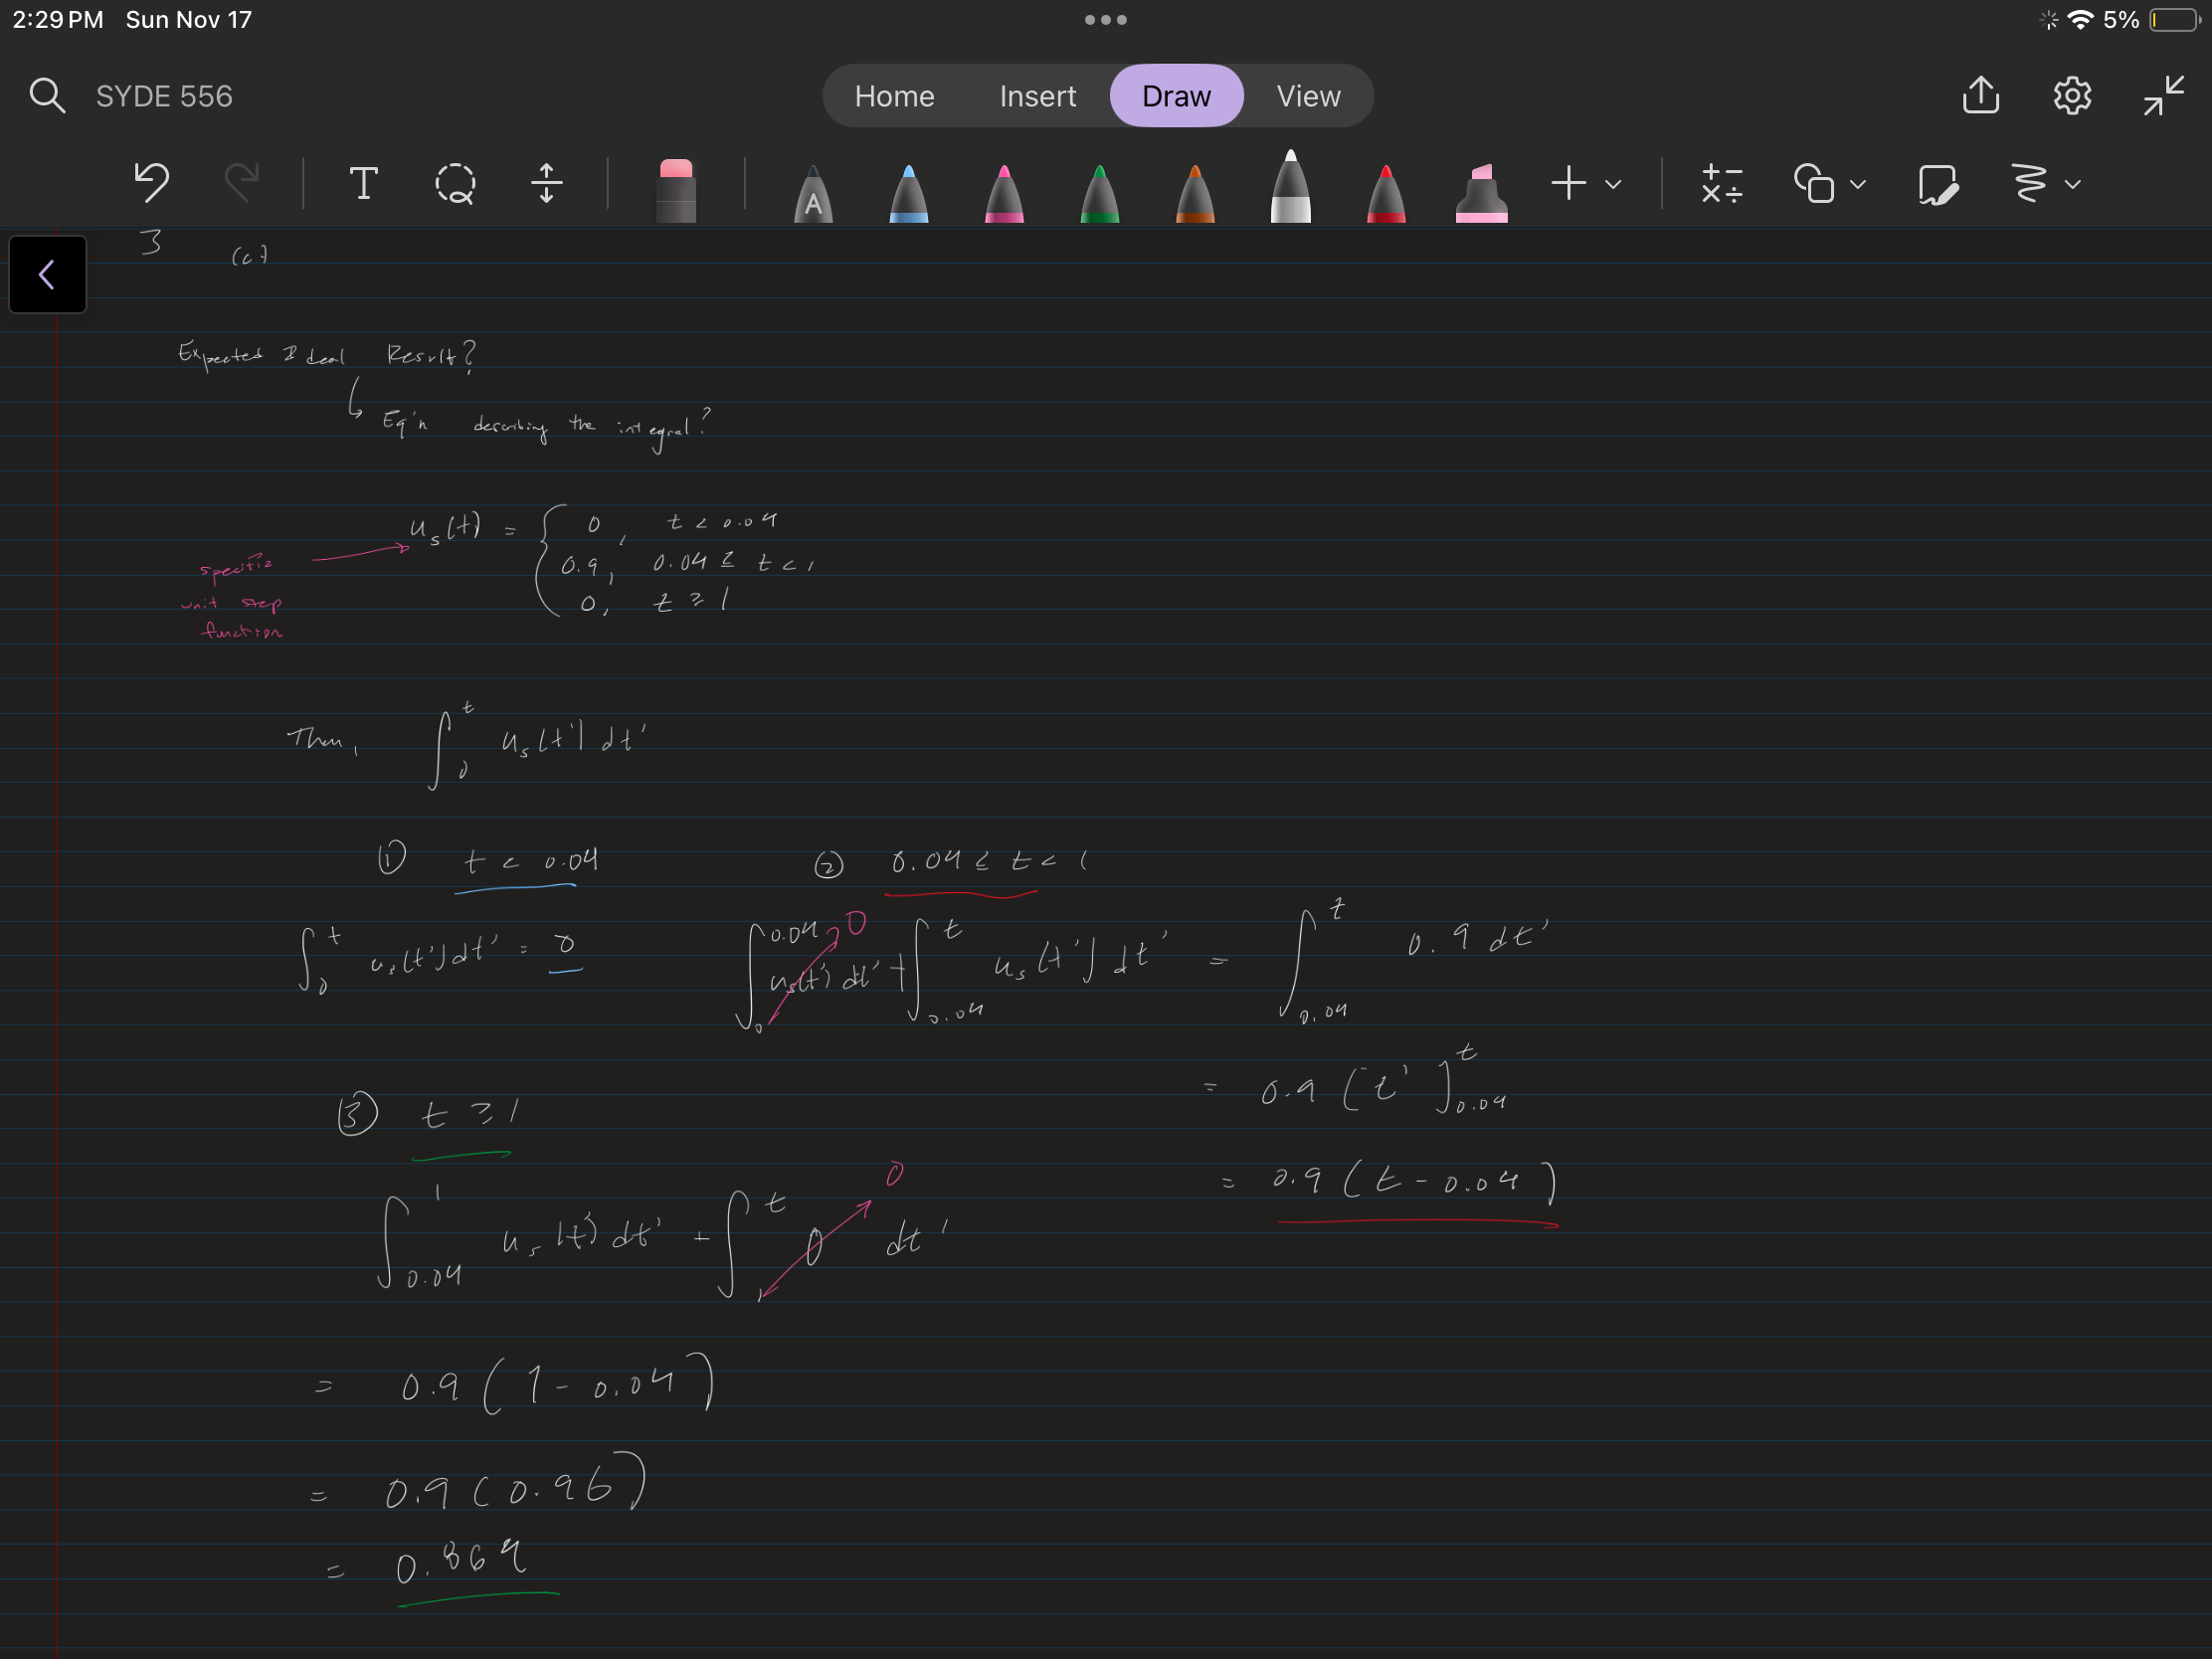 2:29 PM Sun Nov 17 5%
SYDE 556 Home Insert Draw View
T A
3 (c)
Expected Ideal Result?
Eq'n describing the integral?
u_s(t) = { 0, t < 0.04
0.9, 0.04 ≤ t < 1
0, t ≥ 1
specific
unit step
function
Then, ∫_0^t u_s(t') dt'
① t < 0.04
∫_0^t u_s(t') dt' = 0
② 0.04 ≤ t < 1
∫_0^0.04 u_s(t') dt' → 0 + ∫_0.04^t u_s(t') dt' = ∫_0.04^t 0.9 dt'
= 0.9 [t']_0.04^t
= 0.9 (t - 0.04)
③ t ≥ 1
∫_0.04^1 u_s(t') dt' + ∫_1^t 0 dt' → 0
= 0.9 (1 - 0.04)
= 0.9 (0.96)
= 0.864